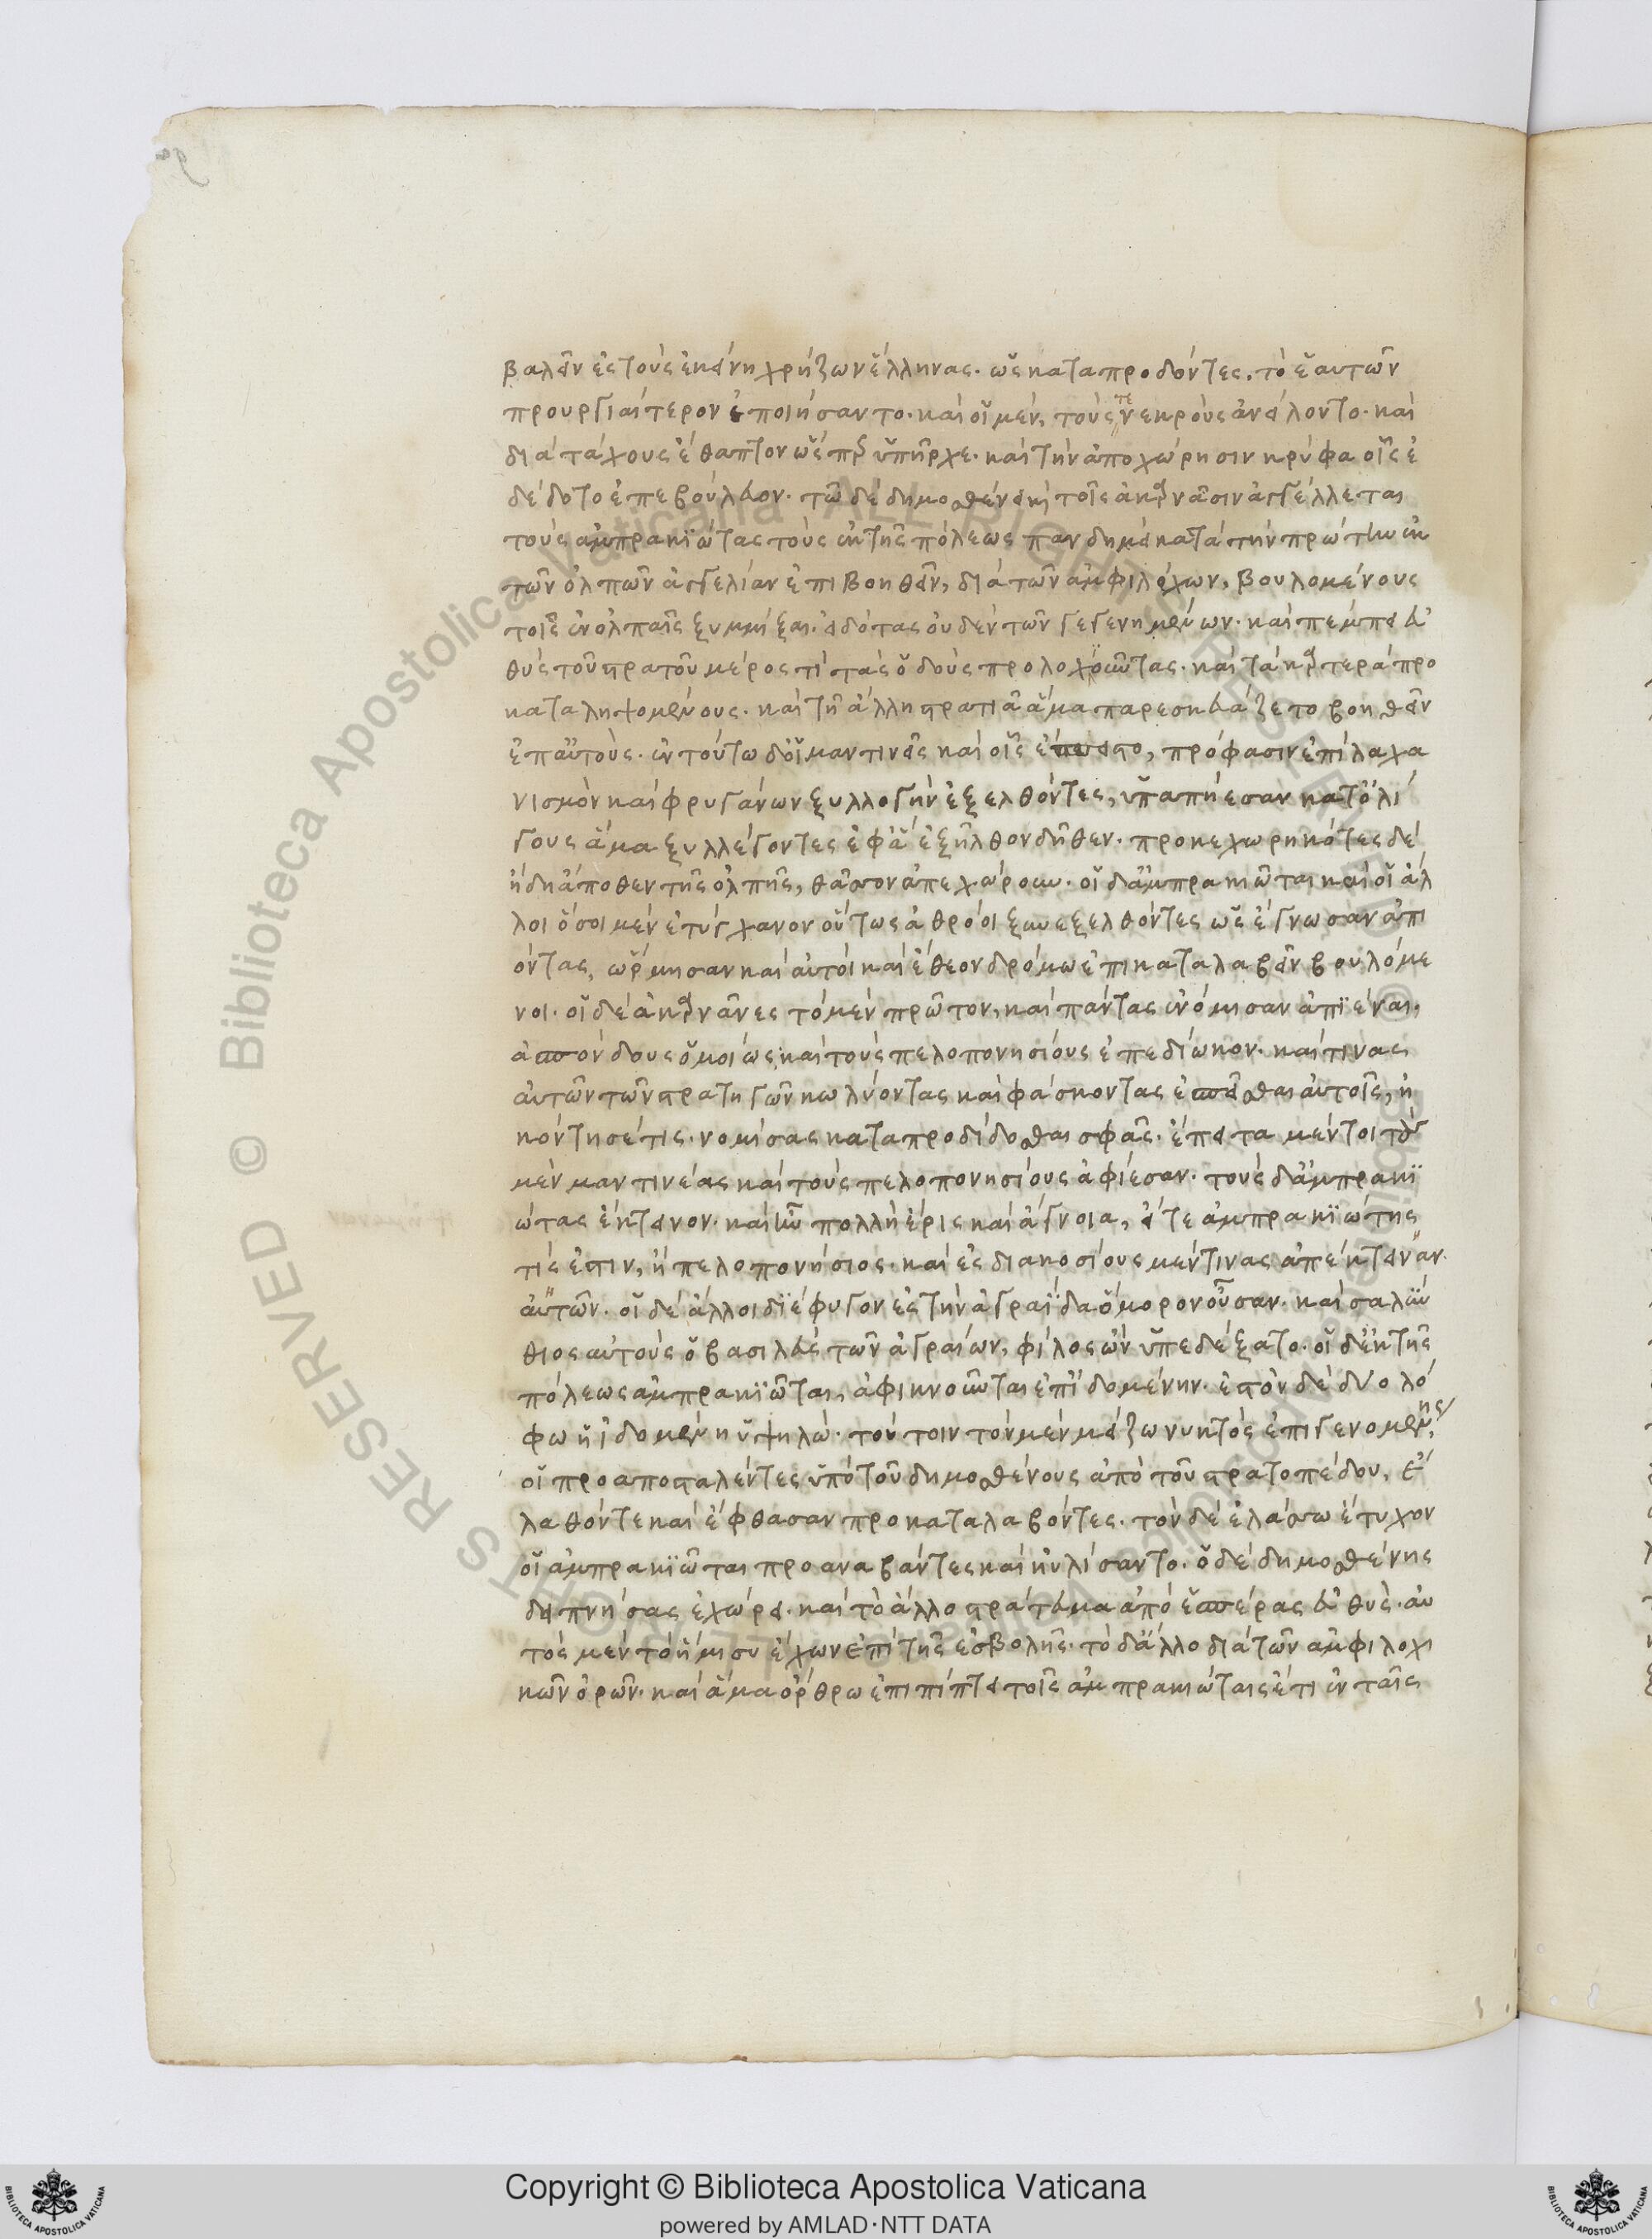 βαλεῖν ἐς τοὺς ἐκείνῃ χρῄζων ἕλληνας. ὡς καταπροδόντες, τὸ ἑαυτῶν
προυργιαίτερον ἐποιήσαντο. καὶ οἱ μὲν, τούς τε νεκροὺς ἀνείλοντο. καὶ
διὰ τάχους ἔθαπτον ὥσπερ ὑπῆρχε. καὶ τὴν ἀποχώρησιν κρύφα οἷς ἐ
δέδοτο ἐπεβούλευον. τῷ δὲ δημοσθένει καὶ τοῖς ἀκαρνᾶσιν ἀγγέλλεται
τοὺς ἀμπρακϊώτας τοὺς ἐκ τῆς πόλεως πανδημεὶ κατὰ τὴν πρώτην ἐκ
τῶν ὀλπῶν ἀγγελίαν ἐπιβοηθεῖν, διὰ τῶν ἀμφιλόχων, βουλομένους
τοῖς ἐν ὄλπαις ξυμμίξαι. εἰδότας οὐδὲν τῶν γεγενημένων. καὶ πέμπει εὐ
θὺς τοῦ στρατοῦ μέρος τι τὰς ὁδοὺς προλοχϊοῦντας. καὶ τὰ καρτερὰ προ
καταληψομένους. καὶ τῇ ἄλλῃ στρατιᾷ ἅμα παρεσκευάζετο βοηθεῖν
ἐπ' αὐτούς. ἐν τούτῳ δ' οἱ μαντινεῖς καὶ οἷς ἔσπειστο, πρόφασιν ἐπὶ λαχα
νισμὸν καὶ φρυγάνων ξυλλογὴν ἐξελθόντες, ὑπαπῄεσαν κατ' ὀλί
γους ἅμα ξυλλέγοντες ἐφ' ἃ ἐξῆλθον δῆθεν. προκεχωρηκότες δὲ
ἤδη ἄποθεν τῆς ὄλπης, θᾶσσον ἀπεχώρουν. οἱ δ' ἀμπρακιῶται καὶ οἱ ἄλ
λοι ὅσοι μὲν ἐτύγχανον οὕτως ἀθρόοι ξυνεξελθόντες ὡς ἔγνωσαν ἀπι
όντας, ὥρμησαν καὶ αὐτοὶ καὶ ἔθεον δρόμῳ ἐπικαταλαβεῖν βουλόμε
νοι. οἱ δὲ ἀκαρνᾶνες τὸ μὲν πρῶτον, καὶ πάντας ἐνόμισαν ἀπϊέναι.
ἀσπόνδους ὁμοίως, καὶ τοὺς πελοπονησίους ἐπεδίωκον. καί τινας
αὐτῶν τῶν στρατηγῶν κωλύοντας καὶ φάσκοντας ἐσπεῖσθαι αὐτοῖς, ἠ
κόντησέ τις. νομίσας καταπροδίδοσθαι σφᾶς. ἔπειτα μέντοι τοὺς
μὲν μαντινέας καὶ τοὺς πελοπονησίους ἀφίεσαν. τοὺς δ' ἀμπρακϊ
ώτας ἔκτεινον. καὶ ἦν πολλὴ ἔρις καὶ ἄγνοια, εἴτε ἀμπρακϊώτης
τίς ἐστιν, ἢ πελοπονήσιος. καὶ ἐς διακοσίους μέν τινας ἀπέκτειναν
αὐτῶν. οἱ δὲ ἄλλοι διέφυγον ἐς τὴν ἀγραΐδα ὅμορον οὖσαν. καὶ σαλύν
θιος αὐτοὺς ὁ βασιλεὺς τῶν ἀγραίων, φίλος ὢν ὑπεδέξατο. οἱ δ' ἐκ τῆς
πόλεως ἀμπρακϊῶται, ἀφικνοῦνται ἐπ' ἰδομένην. ἐστὸν δὲ δύο λό
φω ἡ ἰδομένη ὑψηλώ. τούτοιν τὸν μὲν μείζω νυκτὸς ἐπιγενομένης,
οἱ προαποσταλέντες ὑπὸ τοῦ δημοσθένους ἀπὸ τοῦ στρατοπέδου, ἔ
λαθόν τε καὶ ἔφθασαν προκαταλαβόντες. τὸν δὲ ἐλάσσω ἔτυχον
οἱ ἀμπρακϊῶται προαναβάντες καὶ ηὐλίσαντο. ὁ δὲ δημοσθένης
δειπνήσας ἐχώρει. καὶ τὸ ἄλλο στράτευμα ἀπὸ ἑσπέρας εὐθύς. αὐ
τὸς μὲν τὸ ἥμισυ ἔχων ἐπὶ τῆς ἐσβολῆς. τὸ δ' ἄλλο διὰ τῶν ἀμφιλοχι
κῶν ὀρῶν. καὶ ἅμα ὄρθρῳ ἐπιπίπτει τοῖς ἀμπρακιώταις ἔτι ἐν ταῖς
Copyright © Biblioteca Apostolica Vaticana
powered by AMLAD·NTT DATA